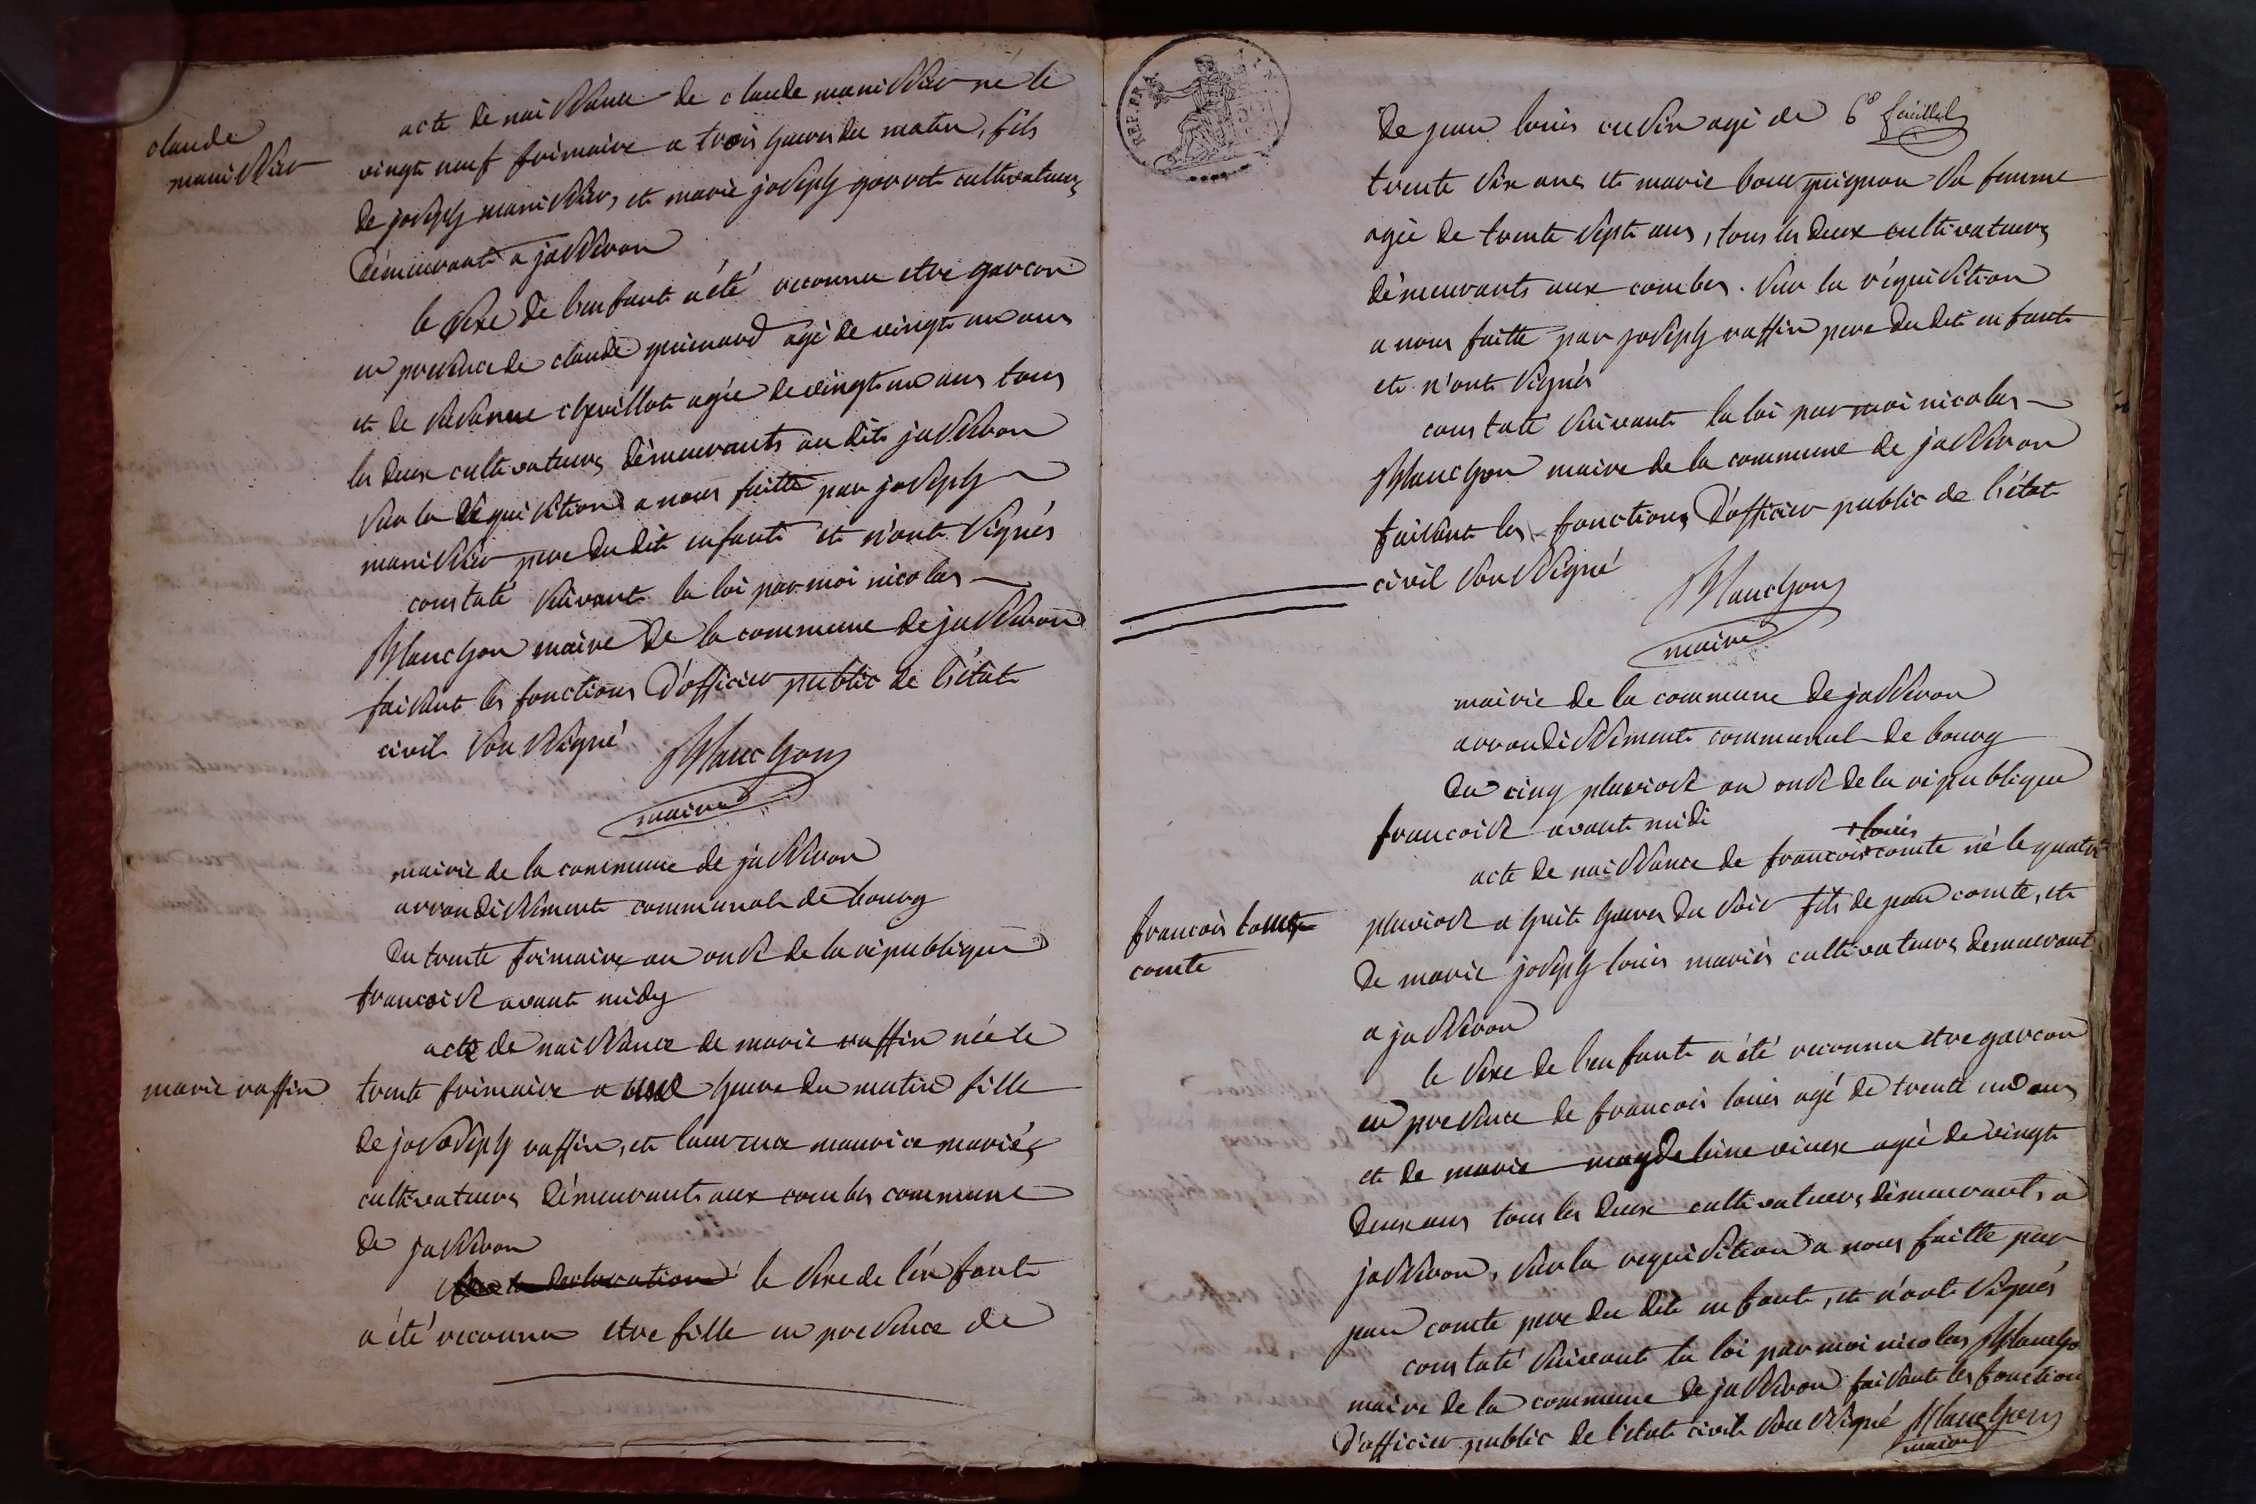 claude
manissier
acte de naissance de claude manissier né le
vingt neuf frimaire a trois heures du matin, fils
de joseph manissier, et marie joseph gorrot cultivateurs
démeurants a jasseron
le sexe de l'enfant a été reconnu etre garcon
en presence de claude guinard agé de vingt un ans
et de susanne chevillot agée de vingt un ans tous
les deux cultivateurs démeurants au dit jasseron
sur la réquisition a nous faitte par joseph
manissier pere du dit enfant et n'ont signés
constaté suivant la loi par moi nicolas
Manchon maire de la commune de jasseron
faisant les fonctions d'officier public de l'état
civil sou ssigné Manchon
maire
mairie de la commune de jasseron
arrondissement communal de bourg
du trente frimaire an onse de la république
francoise avant midy
acte de naissance de marie raffin née le
marie raffin
trente frimaire a une heure du matin fille
de jososeph raffin, et laurence maurice mariés
cultivateurs démeurants aux combes commune
de jasseron
sur la declaration le sexe de l'enfant
a été reconnu etre fille en presence de
REP. FRA.
de jean louis cusin agé de 6e feuillet
trente six ans et marie bourguignon sa femme
agée de trente sept ans, tous les deux cultivateurs
démeurants aux combes. sur la réquisition
a nous faitte par joseph raffin pere du dit enfant
et n'ont signés
constaté suivant la loi par moi nicolas
Manchon maire de la commune de jasseron
faisant les fonctions d'officier public de l'état
civil sou ssigné
Manchon
maire
mairie de la commune de jasseron
arrondissement communal de bourg
du cinq pluviose an onse de la république
francoise avant midi
+ louis
acte de naissance de francois comte né le quatre
francois
comte
pluviose a huit heures du soir fils de jean comte, et
de marie joseph louis mariés cultivateurs demeurant
a jasseron
le sexe de l'enfant a été reconnu etre garcon
en presence de francois louis agé de trente un ans
et de marie magdeleine agée de vingt
deux ans tous les deux cultivateurs démeurants a
jasseron, sur la requisition a nous faitte par
jean comte pere du dit enfant, et n'ont signés
constaté suivant la loi par moi nicolas Mancho
maire de la commune de jasseron faisant les fonction
d'officier public de l'état civil sou ssigné Manchon
maire